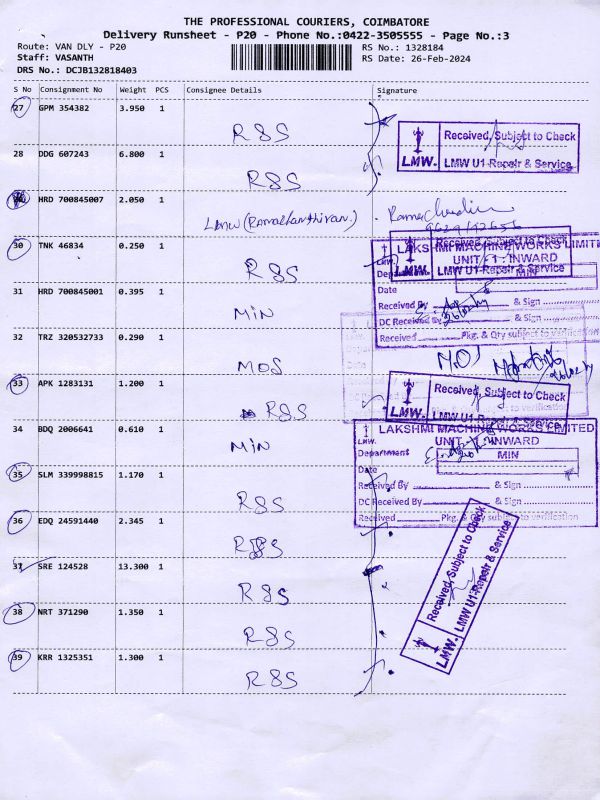 THE PROFESSIONAL COURIERS, COIMBATORE
Delivery Runsheet - P20 - Phone No.:0422-3505555 - Page No.:3
Route: VAN DLY - P20
RS No.: 1328184
Staff: VASANTH
RS Date: 26-Feb-2024
DRS No.: DCJB132818403
S No Consignment No Weight PCS Consignee Details Signature
27 GPM 354382 3.950 1 R&S
Received, Subject to Check
LMW. LMW U1-Repair & Service
28 DDG 607243 6.800 1 R&S
HRD 700845007 2.050 1 LMW (Ramalkanthivan)
30 TNK 46834 0.250 1 R&S
Received, Subject to Check
LMW. LMW U1-Repair & Service
LAKSHMI MACHINE WORKS LIMITED
UNIT - 1 : INWARD
MIN
Date
31 HRD 700845001 0.395 1 MIN
Received By & Sign
DC Received By & Sign
Received Pkg. & Qty subject to verification
32 TRZ 320532733 0.290 1 MOS
M.O.S
33 APK 1283131 1.200 1 R&S
Received, Subject to Check
LMW. LMW U1-Repair & Service
34 BDQ 2006641 0.610 1 MIN
LAKSHMI MACHINE WORKS LIMITED
UNIT - 1 : INWARD
LMW.
Department MIN
Date
35 SLM 339998815 1.170 1 R&S
Received By & Sign
DC Received By & Sign
Received Pkg. & Qty subject to verification
36 EDQ 24591440 2.345 1 R&S
37 SRE 124528 13.300 1 R&S
Received, Subject to Check
LMW. LMW U1-Repair & Service
38 NRT 371290 1.350 1 R&S
39 KRR 1325351 1.300 1 R&S